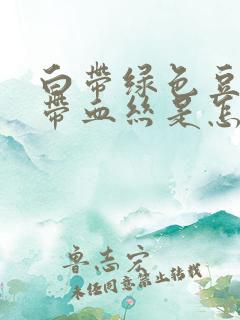 白带绿色豆
带血丝是怎
鲁志宏
未经同意禁止转载